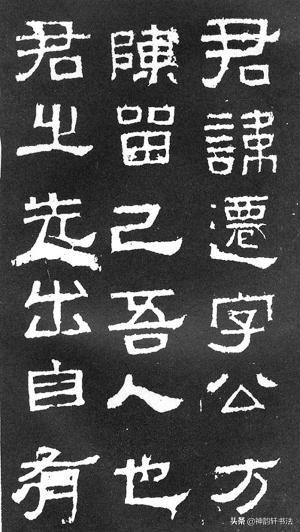 君諱遷字公方
陳留己吾人也
君之先出自有
头条 @神韵轩书法